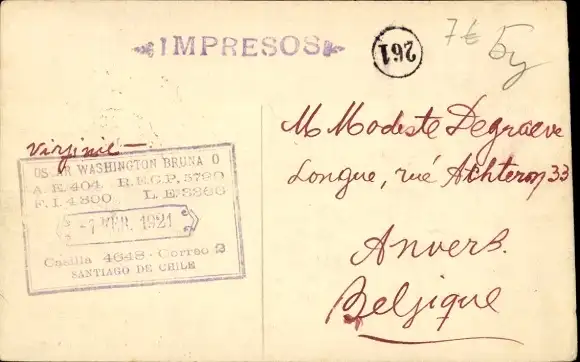 IMPRESOS
261
7€
Virginie —
WASHINGTON BRUNA O
A. E. 404 R.E.C.P. 5790
F. I. 4.800 L. E. 3366
1921
Casilla 4648 - Correo 2
SANTIAGO DE CHILE
M Modeste Degraeve
Longue, rué 33
Anvers.
Belgique